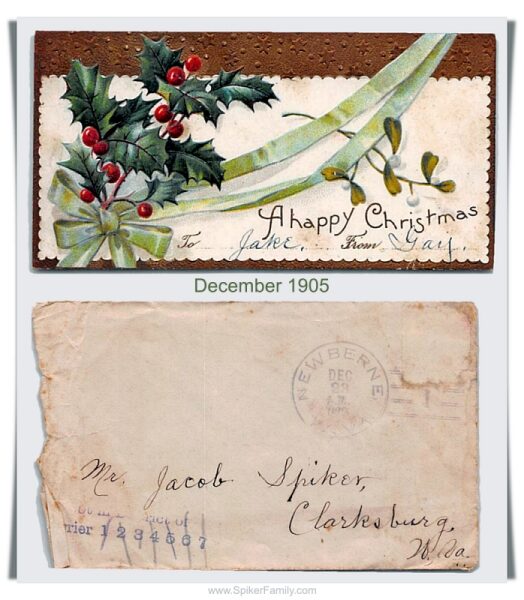 A happy Christmas
To Jake. From Gay.
December 1905
NEWBERNE
DEC
23
Mr. Jacob Spiker,
Clarksburg,
W. Va.
of
rier 1 2 3 4 5 6 7
www.SpikerFamily.com